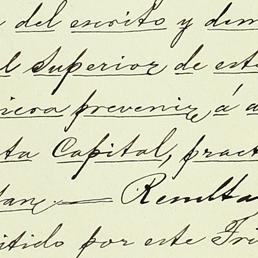 del escrito y dem
l Superior de este
iera prevenir á a
ta Capital, pract
tan, — Resulta
itido por este Tri